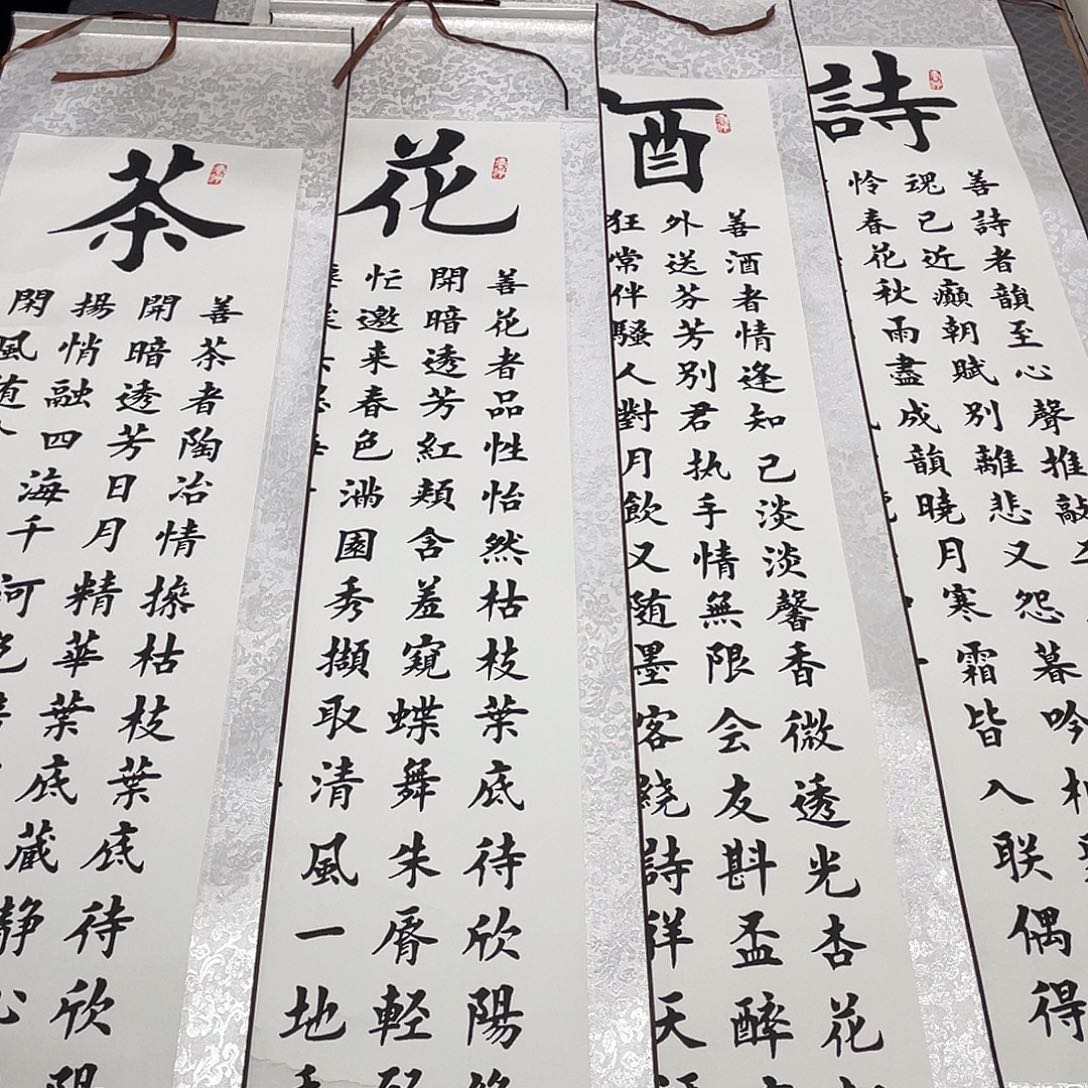 詩
善詩者韻至心聲推敲
魂已近癲朝賦別離悲又怨暮吟
怜春花秋雨盡成韻曉月寒霜皆入联偶得
酒
善酒者情逢知己淡淡馨香微透光杏花
外送芬芳別君执手情無限会友斟盃醉
狂常伴騷人對月飲又随墨客绕詩祥天
花
善花者品性怡然枯枝葉底待欣陽
開暗透芳紅頰含羞窺蝶舞朱脣輕
忙邀来春色滿園秀擷取清風一地
茶
善茶者陶冶情操枯枝葉底待欣陽
開暗透芳日月精華葉底藏静心
揚悄融四海千河
閑風随